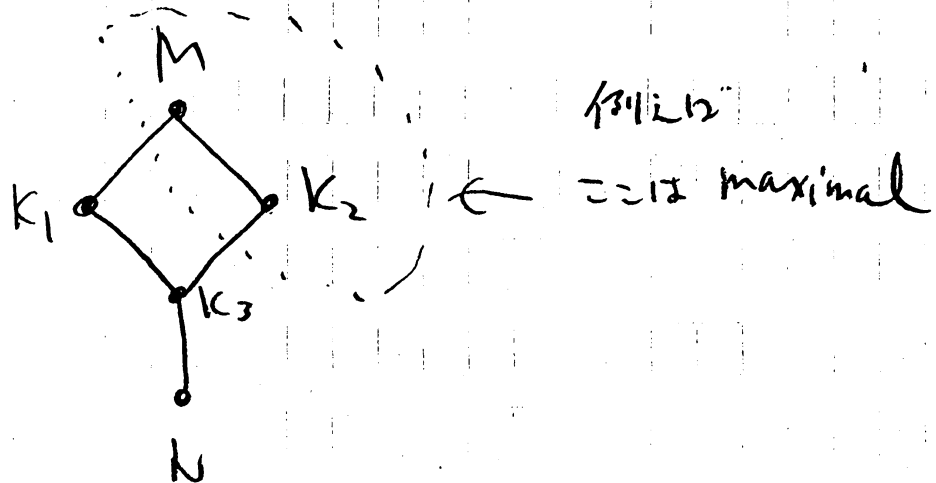 M
例えば
K1 K2 ← ここは maximal
K3
N